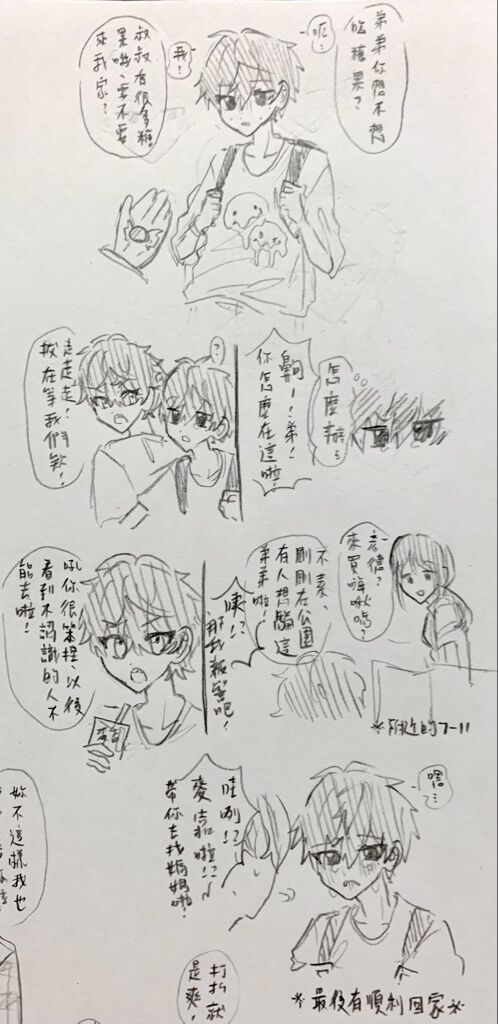 弟弟你想不想
吃糖果？
呃…
我？
叔叔有很多糖
果喲、要不要
來我家？
怎麼辦…
弟！
你怎麼在這啦！
？
走走走！
我在等我們欸！
彥德？
來買嗨啾嗎？
不是、
剛剛在公園
有人想騙這
弟弟啦！
咦！？
那我報警吧！
*附近的7-11
吼你很笨捏、以後
看到不認識的人不
能去啦！
嗯…
哇咧！？
麥哭啦！？
帶你去找媽媽啦！
*最後有順利回家*
妳不這樣我也
打折就
是爽！